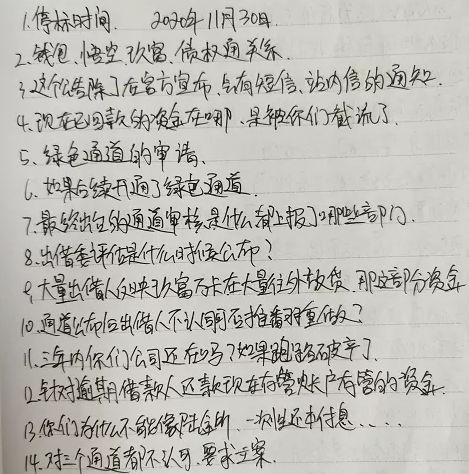 1.停标时间. 2020年11月30日.
2.钱包.悟空.玖富.债权通关系.
3.这个公告除了在官方宣布.后有短信.站内信的通知.
4.现在已回款的资金在哪.是被你们截流了.
5.绿色通道的申请.
6.如果后续开通了绿色通道.
7.最终出台的通道审核是什么都上报了哪些部门.
8.出借委评估是什么时候公布?
9.大量出借人反映玖富万卡在大量往外放贷.那这部分资金
10.通道公布后出借人不认同否推翻重做?
11.三年内你们公司还在吗?如果跑路破产了.
12.针对逾期借款人还款现在存管账户存管的资金.
13.你们为什么不能像陆金所.一次性还本付息.....
14.对三个通道都不认可.要求立案.